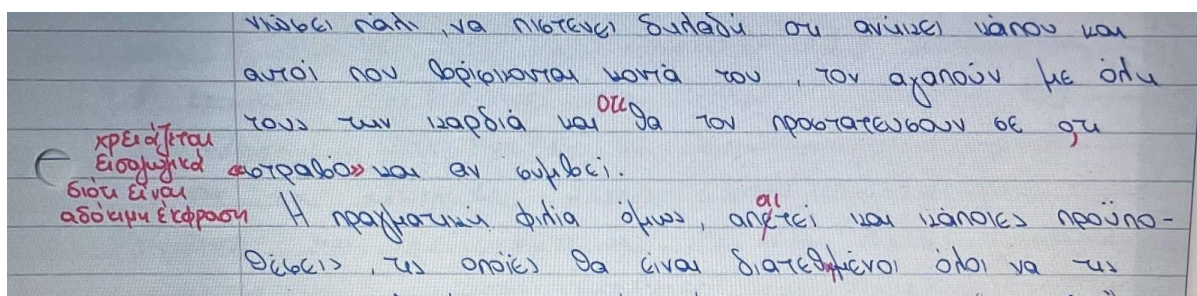 νιώσει πάλι, να πιστεύει δηλαδή οτι ανήκει κάπου και
αυτοί που βρίσκονται κοντά του, τον αγαπούν με όλη
οτι
τους την καρδιά και θα τον προστατεύσουν σε ο,τι
χρειάζεται
εισαγωγικά «στραβό» και αν συμβεί.
διότι είναι
αδόκιμη έκφραση
αι
Η πραγματική φιλία όμως, απετεί και κάποιες προϋπο-
θέσεις, τις οποίες θα είναι διατεθημένοι όλοι να τις